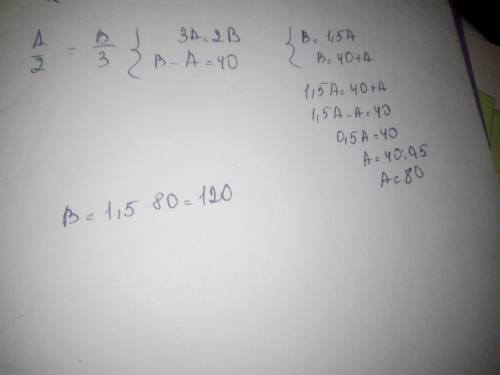 A/2 = B/3 { 3A=2B
B - A = 40
{ B = 1,5A
B = 40+A
1,5A = 40+A
1,5A - A = 40
0,5A = 40
A = 40:0,5
A = 80
B = 1,5 · 80 = 120